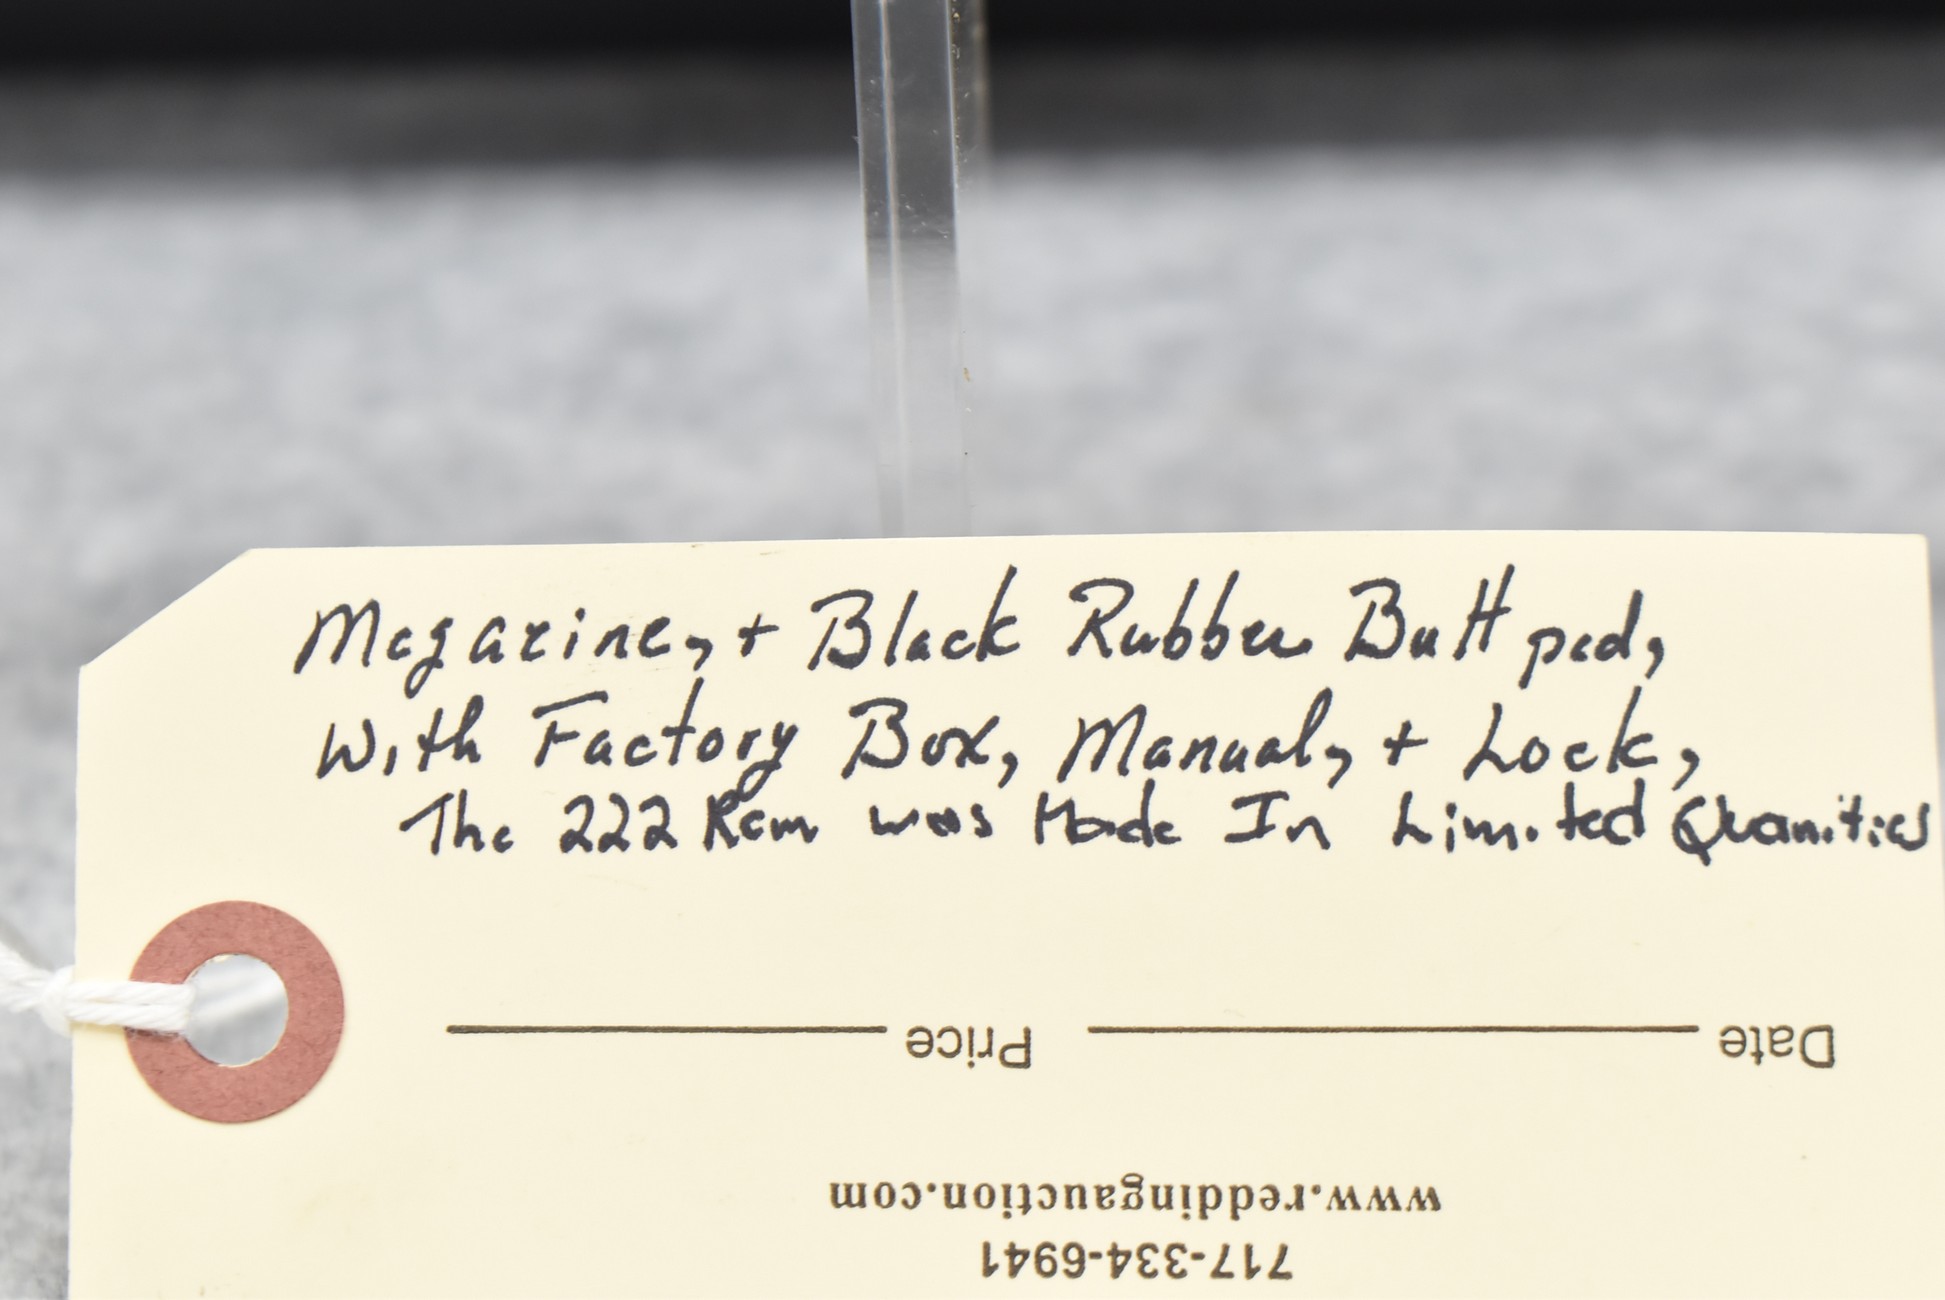 Magazine, + Black Rubber Butt pad,
With Factory Box, Manual, + Lock,
The 222 Rem was Made In Limited Quanities
Price Date
www.reddingauction.com
717-334-6941